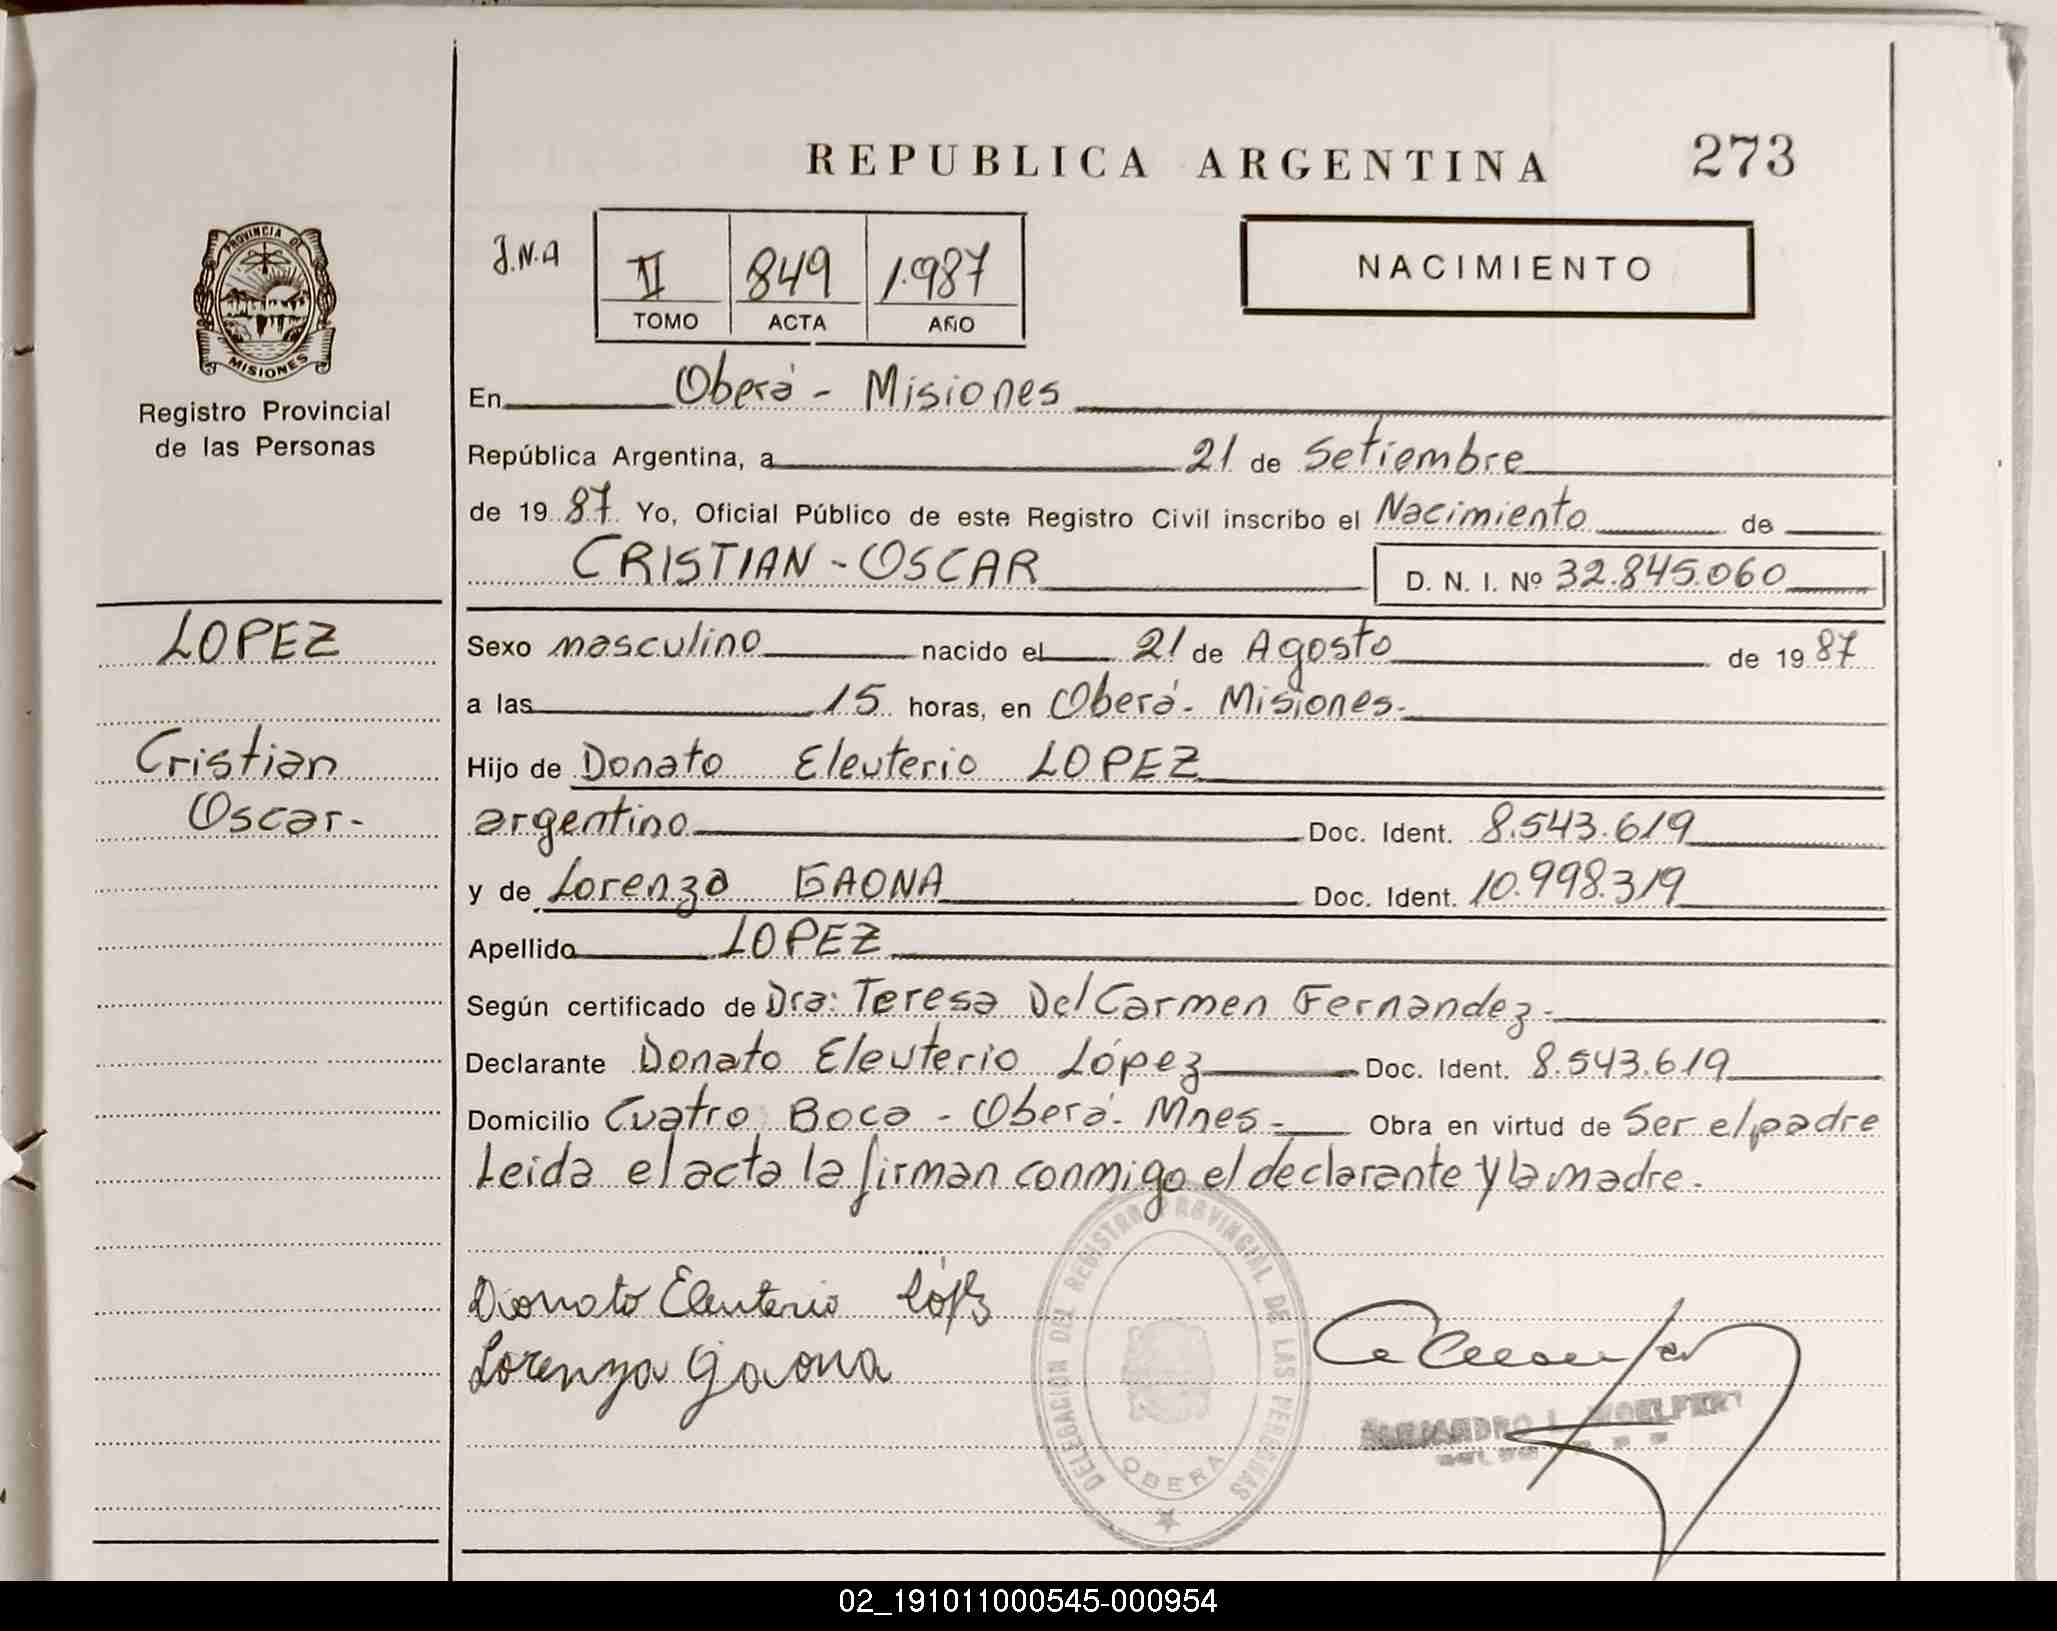 REPUBLICA ARGENTINA
273
PROVINCIA DE
MISIONES
Registro Provincial
de las Personas
J.N.A
II 849 1.987
TOMO ACTA AÑO
NACIMIENTO
En Oberá - Misiones
República Argentina, a 21 de Setiembre
de 1987 Yo, Oficial Público de este Registro Civil inscribo el Nacimiento de
CRISTIAN - OSCAR D. N. I. Nº 32.845.060
LOPEZ
Cristian
Oscar-
Sexo masculino nacido el 21 de Agosto de 1987
a las 15 horas, en Oberá - Misiones.
Hijo de Donato Eleuterio LOPEZ
argentino Doc. Ident. 8.543.619
y de Lorenza GAONA Doc. Ident. 10.998.319
Apellido LOPEZ
Según certificado de Dra: Teresa Del Carmen Fernandez.
Declarante Donato Eleuterio López Doc. Ident. 8.543.619
Domicilio Cuatro Boca - Oberá - Mnes - Obra en virtud de Ser el padre
Leida el acta la firman conmigo el declarante y la madre.
Donato Eleuterio
Lorenza Gaona
DELEGACION DEL REGISTRO PROVINCIAL DE LAS PERSONAS
OBERA
ALEJANDRO
02_191011000545-000954